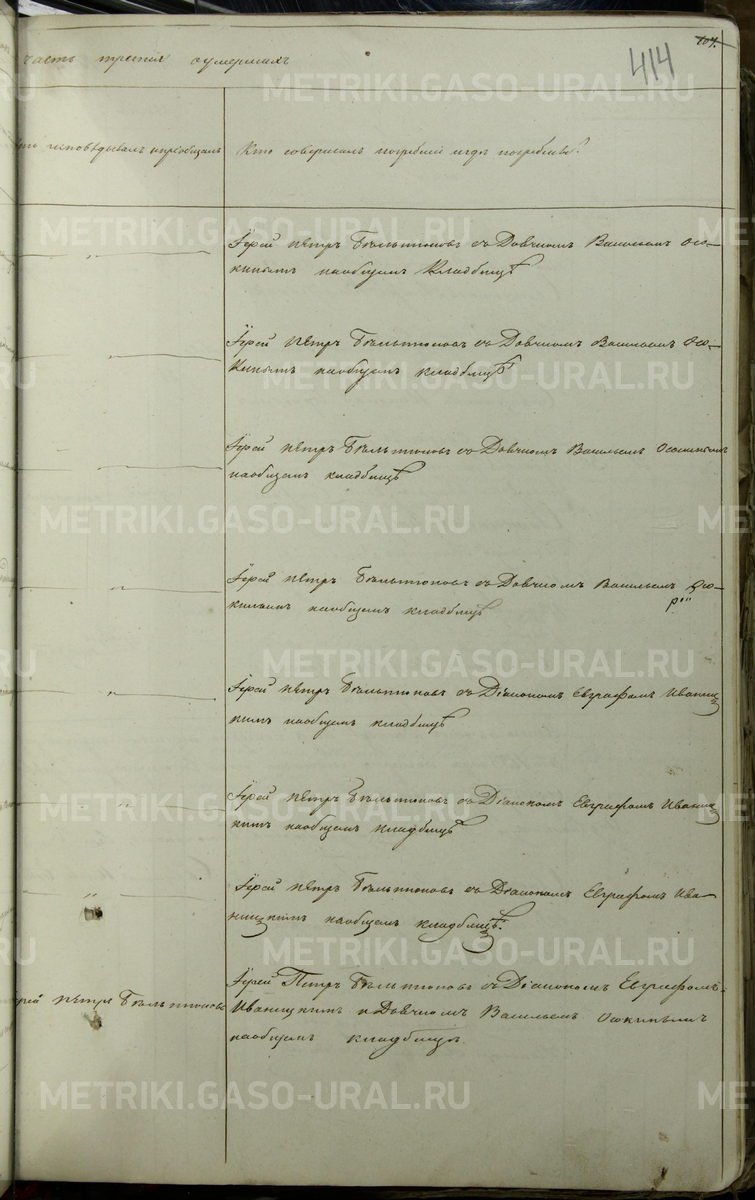 107.
414
часть третья о умершихъ
исповѣдывалъ и пріобщалъ
Кто совершалъ погребеніе и гдѣ погребены?
Іерей Петръ Бѣльтюковъ съ Дьячкомъ Васильемъ Осо-
кинымъ на общемъ Кладбищѣ
Іерей Петръ Бѣльтюковъ съ Дьячкомъ Васильемъ Осо-
кинымъ на общемъ кладбищѣ
Іерей Петръ Бѣльтюковъ съ Дьячкомъ Васильемъ Осокинымъ
на общемъ кладбищѣ
Іерей Петръ Бѣльтюковъ съ Дьячкомъ Васильемъ Осо-
кинымъ на общемъ кладбищѣ
Іерей Петръ Бѣльтюковъ съ Діакономъ Евграфомъ Иваниц-
кимъ на общемъ кладбищѣ
Іерей Петръ Бѣльтюковъ съ Діакономъ Евграфомъ Иваниц-
кимъ на общемъ кладбищѣ
Іерей Петръ Бѣльтюковъ съ Діакономъ Евграфомъ Ива-
ницкимъ на общемъ кладбищѣ.
Іерей Петръ Бѣльтюковъ
Іерей Петръ Бѣльтюковъ съ Діакономъ Евграфомъ
Иваницкимъ и Дьячкомъ Васильемъ Осокинымъ
на общемъ кладбищѣ.
METRIKI.GASO-URAL.RU